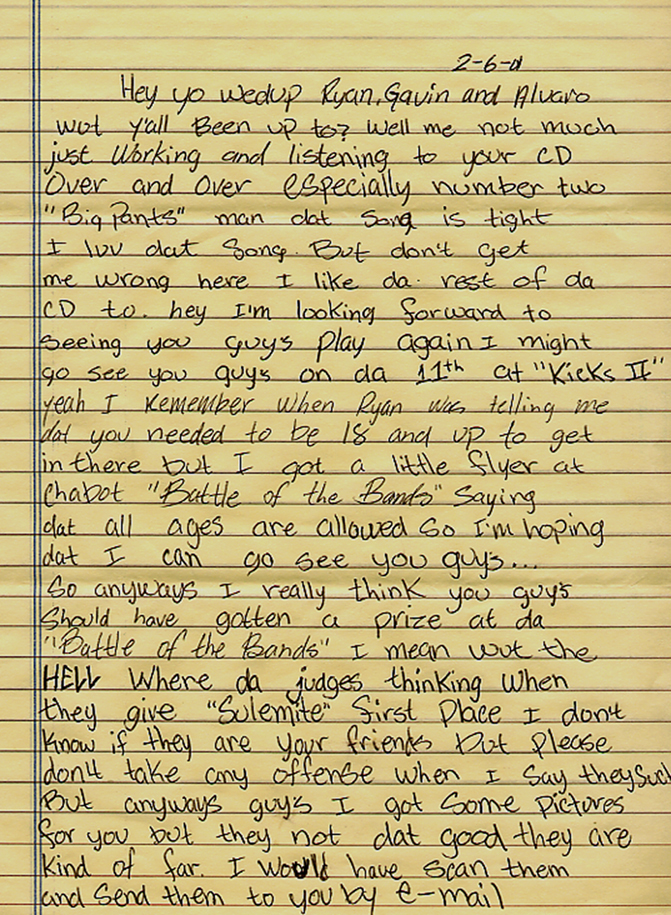 2-6-01
Hey yo wedup Ryan, Gavin and Alvaro
wut y'all Been up to? Well me not much
just Working and listening to your CD
Over and Over especially number two
"Big Pants" man dat song is tight
I luv dat Song. But don't get
me wrong here I like da rest of da
CD to. hey I'm looking forward to
seeing you guy's play again I might
go see you guys on da 11th at "Kicks II"
yeah I remember when Ryan was telling me
dat you needed to be 18 and up to get
in there but I got a little flyer at
Chabot "Battle of the Bands" Saying
dat all ages are allowed so I'm hoping
dat I can go see you guys...
So anyways I really think you guy's
Should have gotten a prize at da
"Battle of the Bands" I mean wut the
HELL Where da judges thinking when
they give "Sulemite" first Place I don't
know if they are your friends but please
don't take any offense when I say they Suck
But anyways guys I got some pictures
for you but they not dat good they are
kind of far. I would have scan them
and send them to you by e-mail